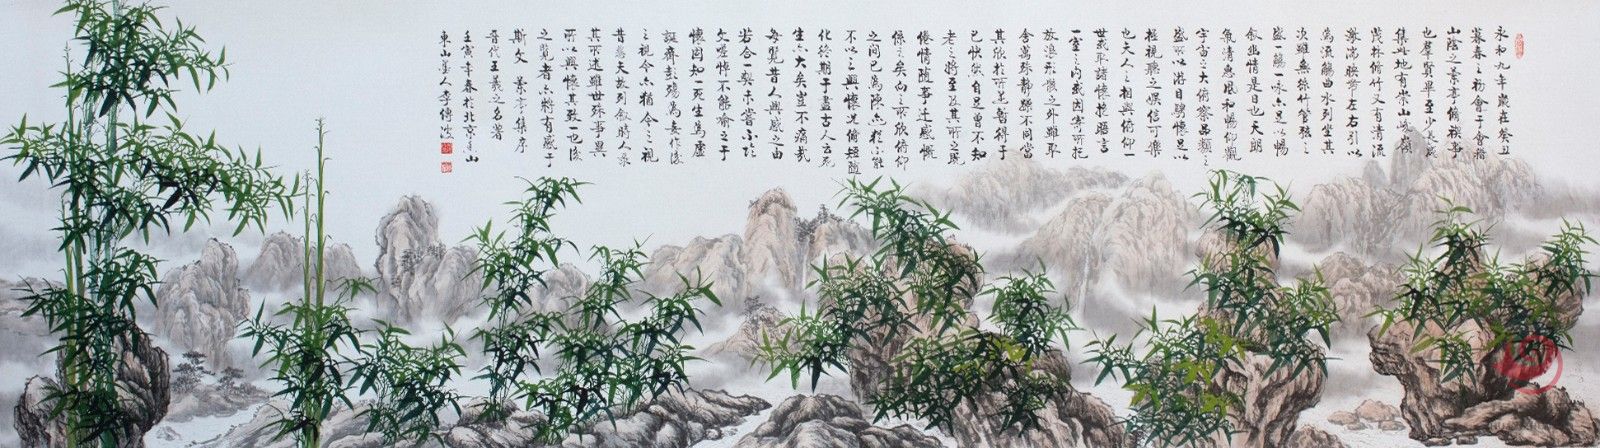 永和九年歲在癸丑
暮春之初會于會稽
山陰之蘭亭脩禊事
也羣賢畢至少長咸
集此地有崇山峻領
茂林脩竹又有清流
激湍映帶左右引以
為流觴曲水列坐其
次雖無絲竹管弦之
盛一觴一詠亦足以暢
敘幽情是日也天朗
氣清惠風和暢仰觀
宇宙之大俯察品類之
盛所以游目騁懷足以
極視聽之娛信可樂
也夫人之相與俯仰一
世或取諸懷抱悟言
一室之内或因寄所托
放浪形骸之外雖取
舍萬殊靜躁不同當
其欣於所遇暫得于
己快然自足曾不知
老之將至及其所之既
倦情隨事遷感慨
係之矣向之所欣俯仰
之間已為陳迹猶不能
不以之興懷況脩短隨
化終期于盡古人云死
生亦大矣豈不痛哉
每覽昔人興感之由
若合一契未嘗不臨
文嗟悼不能喻之于
懷固知一死生為虛
誕齊彭殤為妄作後
之視今亦猶今之視
昔悲夫故列敘時人錄
其所述雖世殊事異
所以興懷其致一也後
之覽者亦將有感于
斯文 蘭亭集序
晉代王羲之名著
壬寅年春於北京香山
東山墨人李傳波